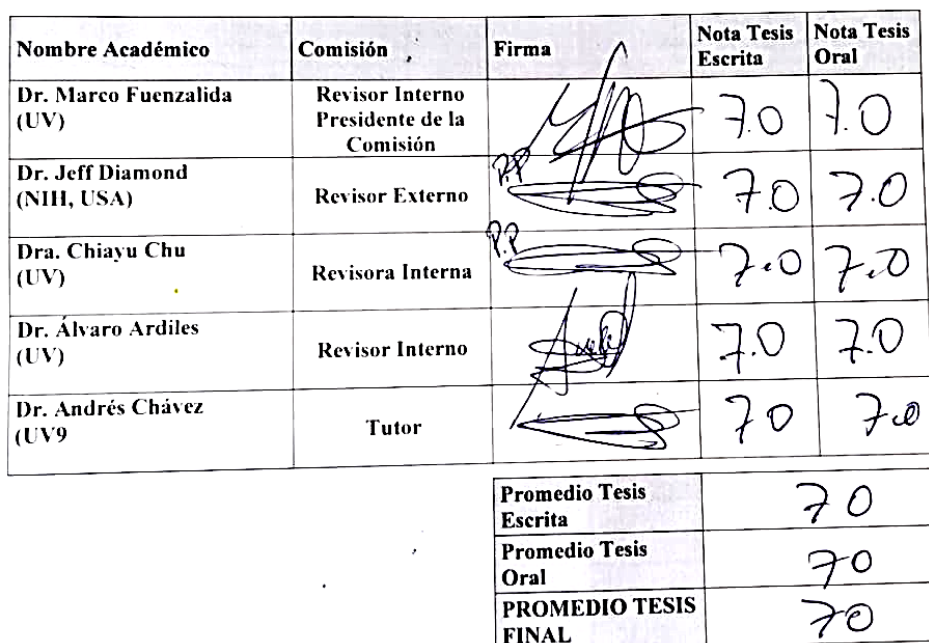 Nombre Académico Comisión Firma Nota Tesis Escrita Nota Tesis Oral
Dr. Marco Fuenzalida
(UV)
Revisor Interno
Presidente de la
Comisión
7.0 7.0
Dr. Jeff Diamond
(NIH, USA)
Revisor Externo
P.P
7.0 7.0
Dra. Chiayu Chu
(UV)
Revisora Interna
P.P
7.0 7.0
Dr. Álvaro Ardiles
(UV)
Revisor Interno
7.0 7.0
Dr. Andrés Chávez
(UV9
Tutor
70 7.0
Promedio Tesis
Escrita
70
Promedio Tesis
Oral
70
PROMEDIO TESIS
FINAL
70